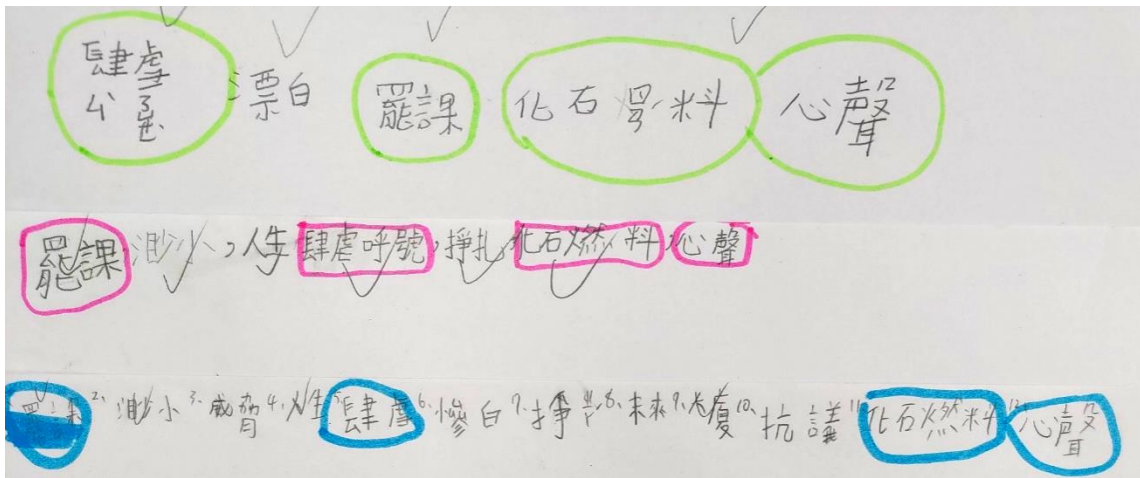 肆虐 漂白 罷課 化石 料 心聲
ㄙˋ
罷課,渺小,人生,肆虐呼號,掙扎,化石燃料,心聲
2.渺小 3.威脅 4.人生 5.肆虐 6.慘白 7.掙扎 8.未來 9. 10.抗議 11.化石燃料 12.心聲